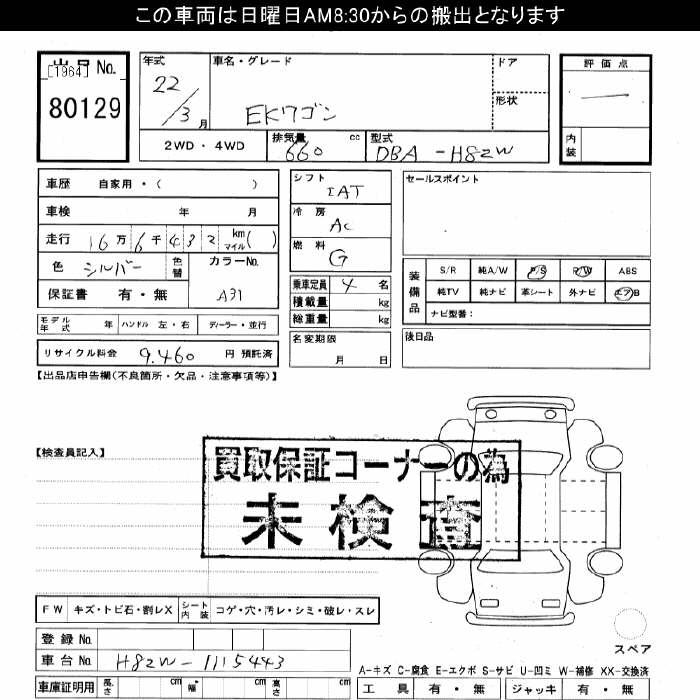 この車両は日曜日AM8:30からの搬出となります
出品 No.
[1964]
80129
年式
22/3月
車名・グレード
EKワゴン
ドア
形状
評価点
―
内装
2WD・4WD
排気量 660 cc
型式 DBA-H82W
車歴 自家用・( )
車検 年 月
走行 16万6千432 km マイル( )
色 シルバー 色替
カラーNo. A31
保証書 有・無
モデル年式 年 ハンドル 左・右 ディーラー・並行
リサイクル料金 9,460 円 預託済
シフト IAT
冷房 AC
燃料 G
乗車定員 4 名
積載量 kg
総重量 kg
名変期限 月 日
セールスポイント
装備品
S/R 純A/W P/S P/W ABS
純TV 純ナビ 革シート 外ナビ エアB
ナビ型番:
後日品
【出品店申告欄(不良箇所・欠品・注意事項等)】
【検査員記入】
買取保証コーナーの為
未検査
FW キズ・トビ石・割レX シート内装 コゲ・穴・汚レ・シミ・破レ・スレ
登録No.
車台No. H82W-1115443
車庫証明用 長さ cm 幅 cm 高さ cm
スペア
A-キズ C-腐食 E-エクボ S-サビ U-凹ミ W-補修 XX-交換済
工具 有・無 ジャッキ 有・無